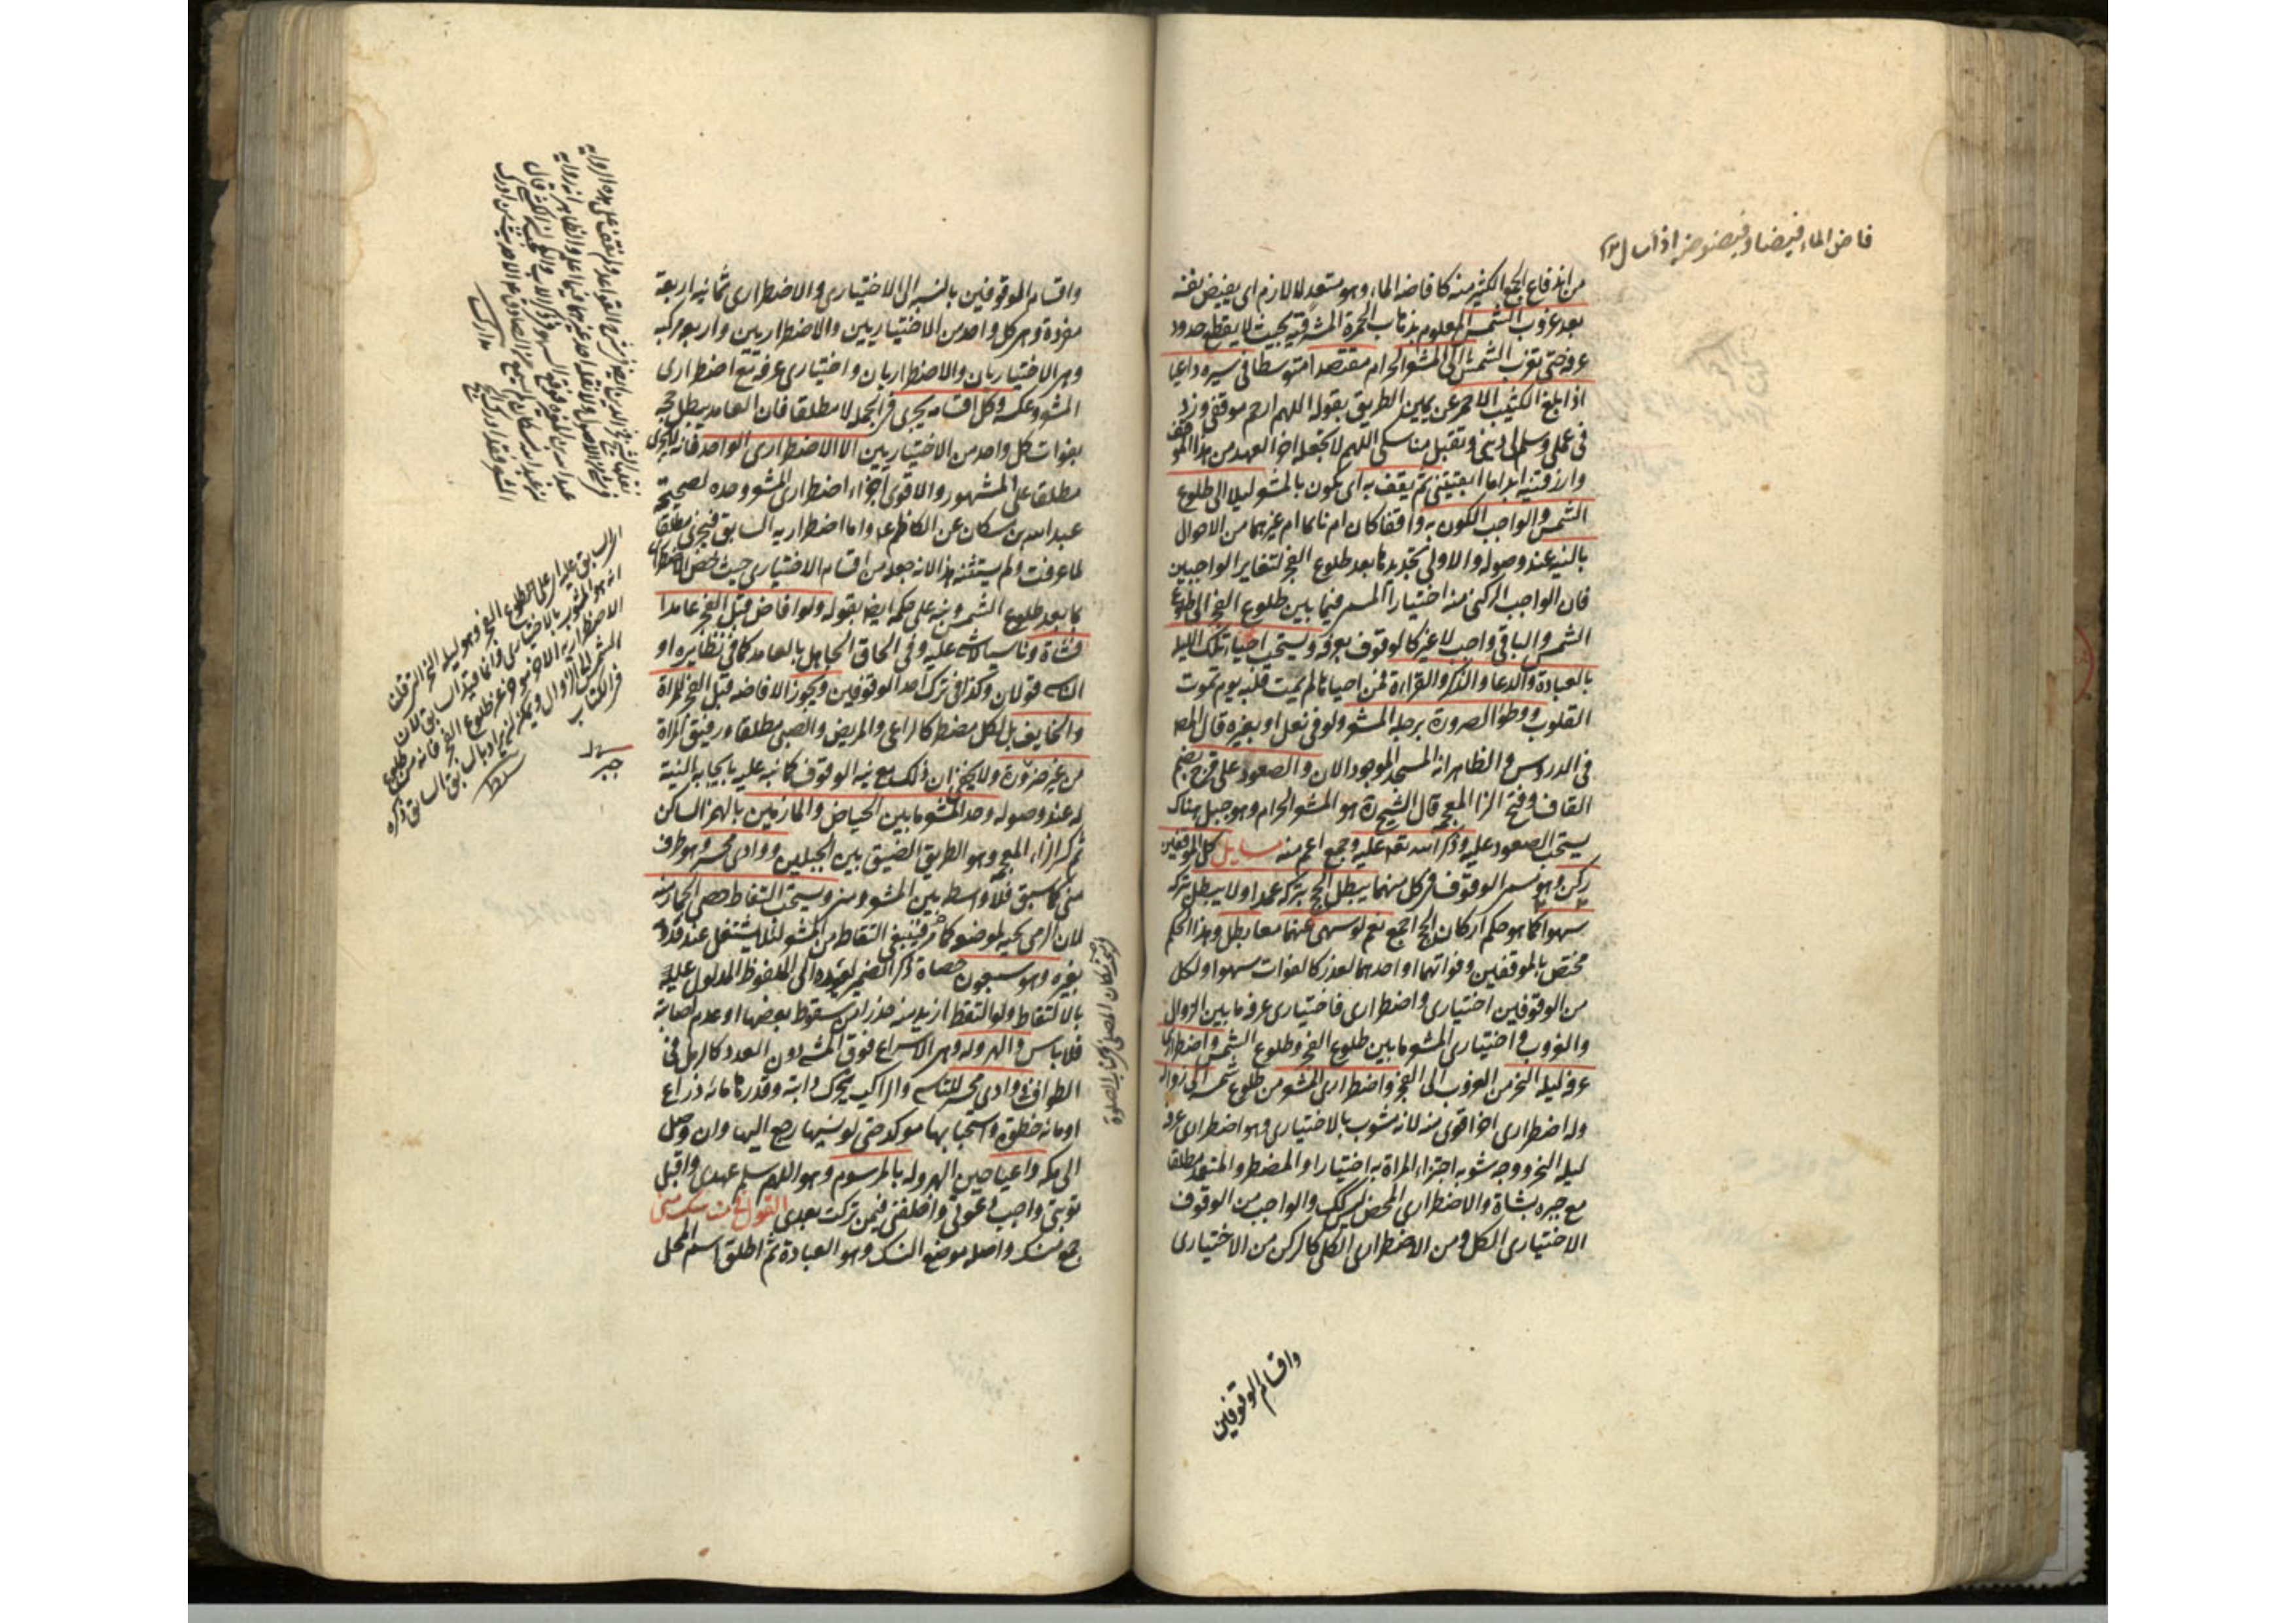 فاض الماء فيضا و فيضوضة اذا سال
من اندفاع الجمع الكثير منه كافاضة الماء وهو متعد لا لازم اى يفيض نفسه
بعد غروب الشمس المعلوم بذهاب الحمرة المشرقية بحيث لا يقطع حدود
عرفة حتى تغرب الشمس الى المشعر الحرام مقتصدا متوسطا فى سيره داعيا
اذا بلغ الكثيب الاحمر عن يمين الطريق بقوله اللهم ارحم موقفى وزد
فى عملى وسلم لى دينى وتقبل مناسكى اللهم لا تجعله اخر العهد من هذا الموقف
وارزقنيه ابدا ما ابقيتنى ثم يقف به اى يكون بالمشعر ليلا الى طلوع
الشمس والواجب الكون به واقفا كان ام نائما ام غيرهما من الاحوال
بالنية عند وصوله والاولى تجديدها بعد طلوع الفجر لتغاير الواجبين
فان الواجب الركنى منه اختيارا المسمى فيما بين طلوع الفجر الى طلوع
الشمس والباقى واجب لا غير كالوقوف بعرفة ويستحب احياء تلك الليلة
بالعبادة والدعاء والذكر والقراءة فمن احياها لم يمت قلبه يوم تموت
القلوب ووطؤ الصرورة برجله المشعر ولو فى نعل او بعيره قال المص
فى الدروس والظاهر انه المسجد الموجود الان والصعود على قزح بضم
القاف وفتح الزا المعجمة قال الشيخ ره هو المشعر الحرام وهو جبل هناك
يستحب الصعود عليه وذكر الله تعه عليه وجمع اعم منه مسايل كل الموقفين
ركن وهو مسمى الوقوف فى كل منهما يبطل الحج بتركه عمدا ولا يبطل بتركه
سهوا كما هو حكم اركان الحج اجمع نعم لو سهى عنهما معا بطل وهذا الحكم
مختص بالموقفين وفواتهما او احدهما لعذر كالفوات سهوا ولكل
من الوقوفين اختيارى واضطرارى فاختيارى عرفة ما بين الزوال
والغروب واختيارى المشعر ما بين طلوع الفجر وطلوع الشمس واضطرارى
عرفة ليلة النحر من الغروب الى الفجر واضطرارى المشعر من طلوع شمسه الى زواله
وله اضطرارى اخر اقوى منه لانه مشوب بالاختيارى وهو اضطرارى عرفة
ليلة النحر ووجه شوبه اجتزاء المراة به اختيارا والمضطر والمتعمد مطلقا
مع جبره بشاة والاضطرارى المحض ليس كك والواجب من الوقوف
الاختيارى الكل ومن الاضطرارى الكلى كالركن من الاختيارى
واقسام الوقوفين
واقسام الموقوفين بالنسبة الى الاختيارى والاضطرارى ثمانية اربعة
مفردة وهى كل واحد من الاختياريين والاضطراريين واربع مركبة
وهى الاختياريان والاضطراريان واختيارى عرفة مع اضطرارى
المشعر وعكسه وكل اقسامه يجزى فى الجملة لا مطلقا فان العامد يبطل حجه
بفوات كل واحد من الاختياريين الا الاضطرارى الواحد فانه لا يجزى
مطلقا على المشهور والاقوى اجزاء اضطرارى المشعر وحده لصحيحة
عبد الله بن مسكان عن الكاظم ع واما اضطراريه السابق فيجزى مطلقا
لما عرفت ولم يستثنه هنا لانه جعله من اقسام الاختيارى حيث خص الاضطرارى
بما بعد طلوع الشمس ونبه على حكمه ايضا بقوله ولو افاض قبل الفجر عامدا
فشاة وناسيا لا شىء عليه وفى الحاق الجاهل بالعامد كما فى نظايره او
الناسى قولان وكذا فى ترك احد الوقوفين ويجوز الافاضة قبل الفجر للمراة
والخايف بل لكل مضطر كالراعى والمريض والصبى مطلقا ورفيق المراة
من غير ضرورة ولا يخفى ان ذلك مع نية الوقوف كما نبه عليه بايجابه النية
له عند وصوله وحد المشعر ما بين الحياض والمازمين بالهمز الساكن
ثم كسر الزاء المعجمة وهو الطريق الضيق بين الجبلين ووادى محسر وهو طرف
منى كما سبق فلا واسطة بين المشعر ومنى ويستحب التقاط حصى الجمار منه
لان الرمى تحية لموضعه كما مر فينبغى التقاطه من المشعر لئلا يشتغل عند قدومه
بغيره وهو سبعون حصاة ذكر الضمير لعوده الى الملفوظ المدلول عليه
بالالتقاط ولو التقط ازيد منه حذرا من سقوط بعضها او عدم اصابته
فلا باس والهرولة وهى الاسراع فوق المشى دون العدو كالرمل فى
الطواف فى وادى محسر للماشى والراكب يحرك دابته وقدرها مائة ذراع
او مائة خطوة واستحبابها موكد حتى لو نسيها رجع اليها وان وصل
الى مكة داعيا حين الهرولة بالمرسوم وهو اللهم سلم عهدى واقبل
توبتى واجب دعوتى واخلفنى فيمن تركت بعدى القول فى مناسك منى
جمع منسك واصله موضع النسك وهو العبادة ثم اطلق اسم المحل